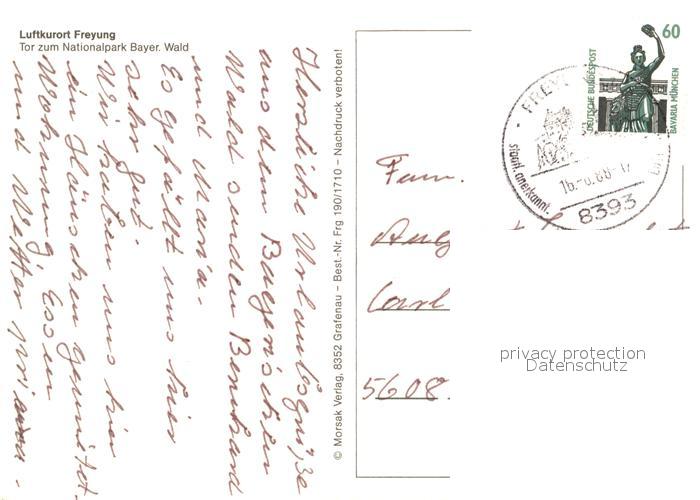 Luftkurort Freyung
Tor zum Nationalpark Bayer. Wald
Herzliche Urlaubsgrüße
aus dem Bayerischen
Wald senden Bernhard
und Maria.
Es gefällt uns hier
sehr gut.
Wir haben uns hier
ein Häuschen gemietet.
Wohnung, Essen
und Wetter prima.
© Morsak Verlag, 8352 Grafenau – Best.-Nr. Frg 190/1710 – Nachdruck verboten!
60
DEUTSCHE BUNDESPOST
BAVARIA MÜNCHEN
FREY
staatl. anerkannt.
8393
Fam.
Aug
Carl
5608.
privacy protection
Datenschutz